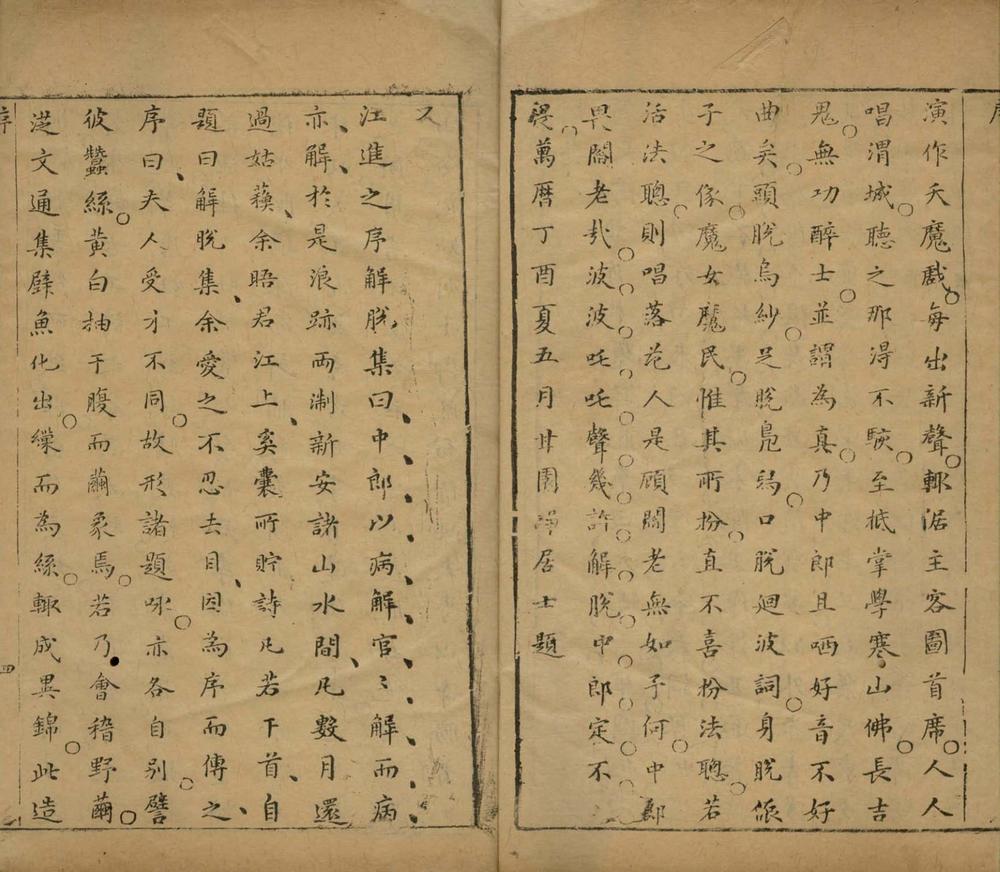 序
演作天魔戲每出新聲輙㞐主客圖首席人人
唱渭城聽之那得不駭至抵掌學寒山佛長吉
鬼無功醉士並謂為真乃中郎且哂好音不好
曲矣頭脫烏紗足脫鳧舄口脫廻波詞身脫
子之像魔女魔民惟其所扮直不喜扮法聰若
活法聰則唱落花人是顧闍老無如子何中郎
畏閻老哉波波吒吒聲幾許解脫中郎定不
萬曆丁酉夏五月廿園居士題
又
江進之序解脫集曰中郎以病解官〻解而病
亦解於是浪跡両淛新安諸山水間凡數月還
過姑蘓余晤君江上奚囊所貯詩凡若干首自
題曰解脫集余愛之不忍去目因為序而傳之
序曰夫人受才不同故形諸題咏亦各自別譬
彼蠶絲黃白抽于腹而繭象焉若乃會稽野繭
從文通集壁魚化出繅而為絲輙成異錦此造
序
四